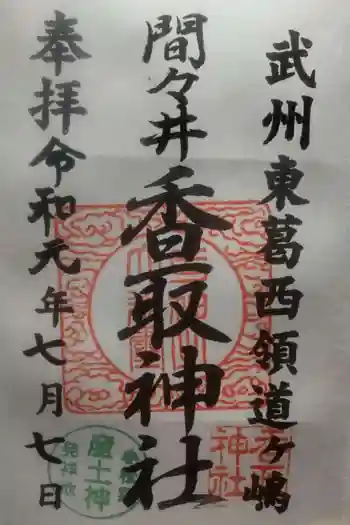 武州東葛西領道ヶ嶋
間々井
香取神社
奉拝令和元年七月七日
産土神